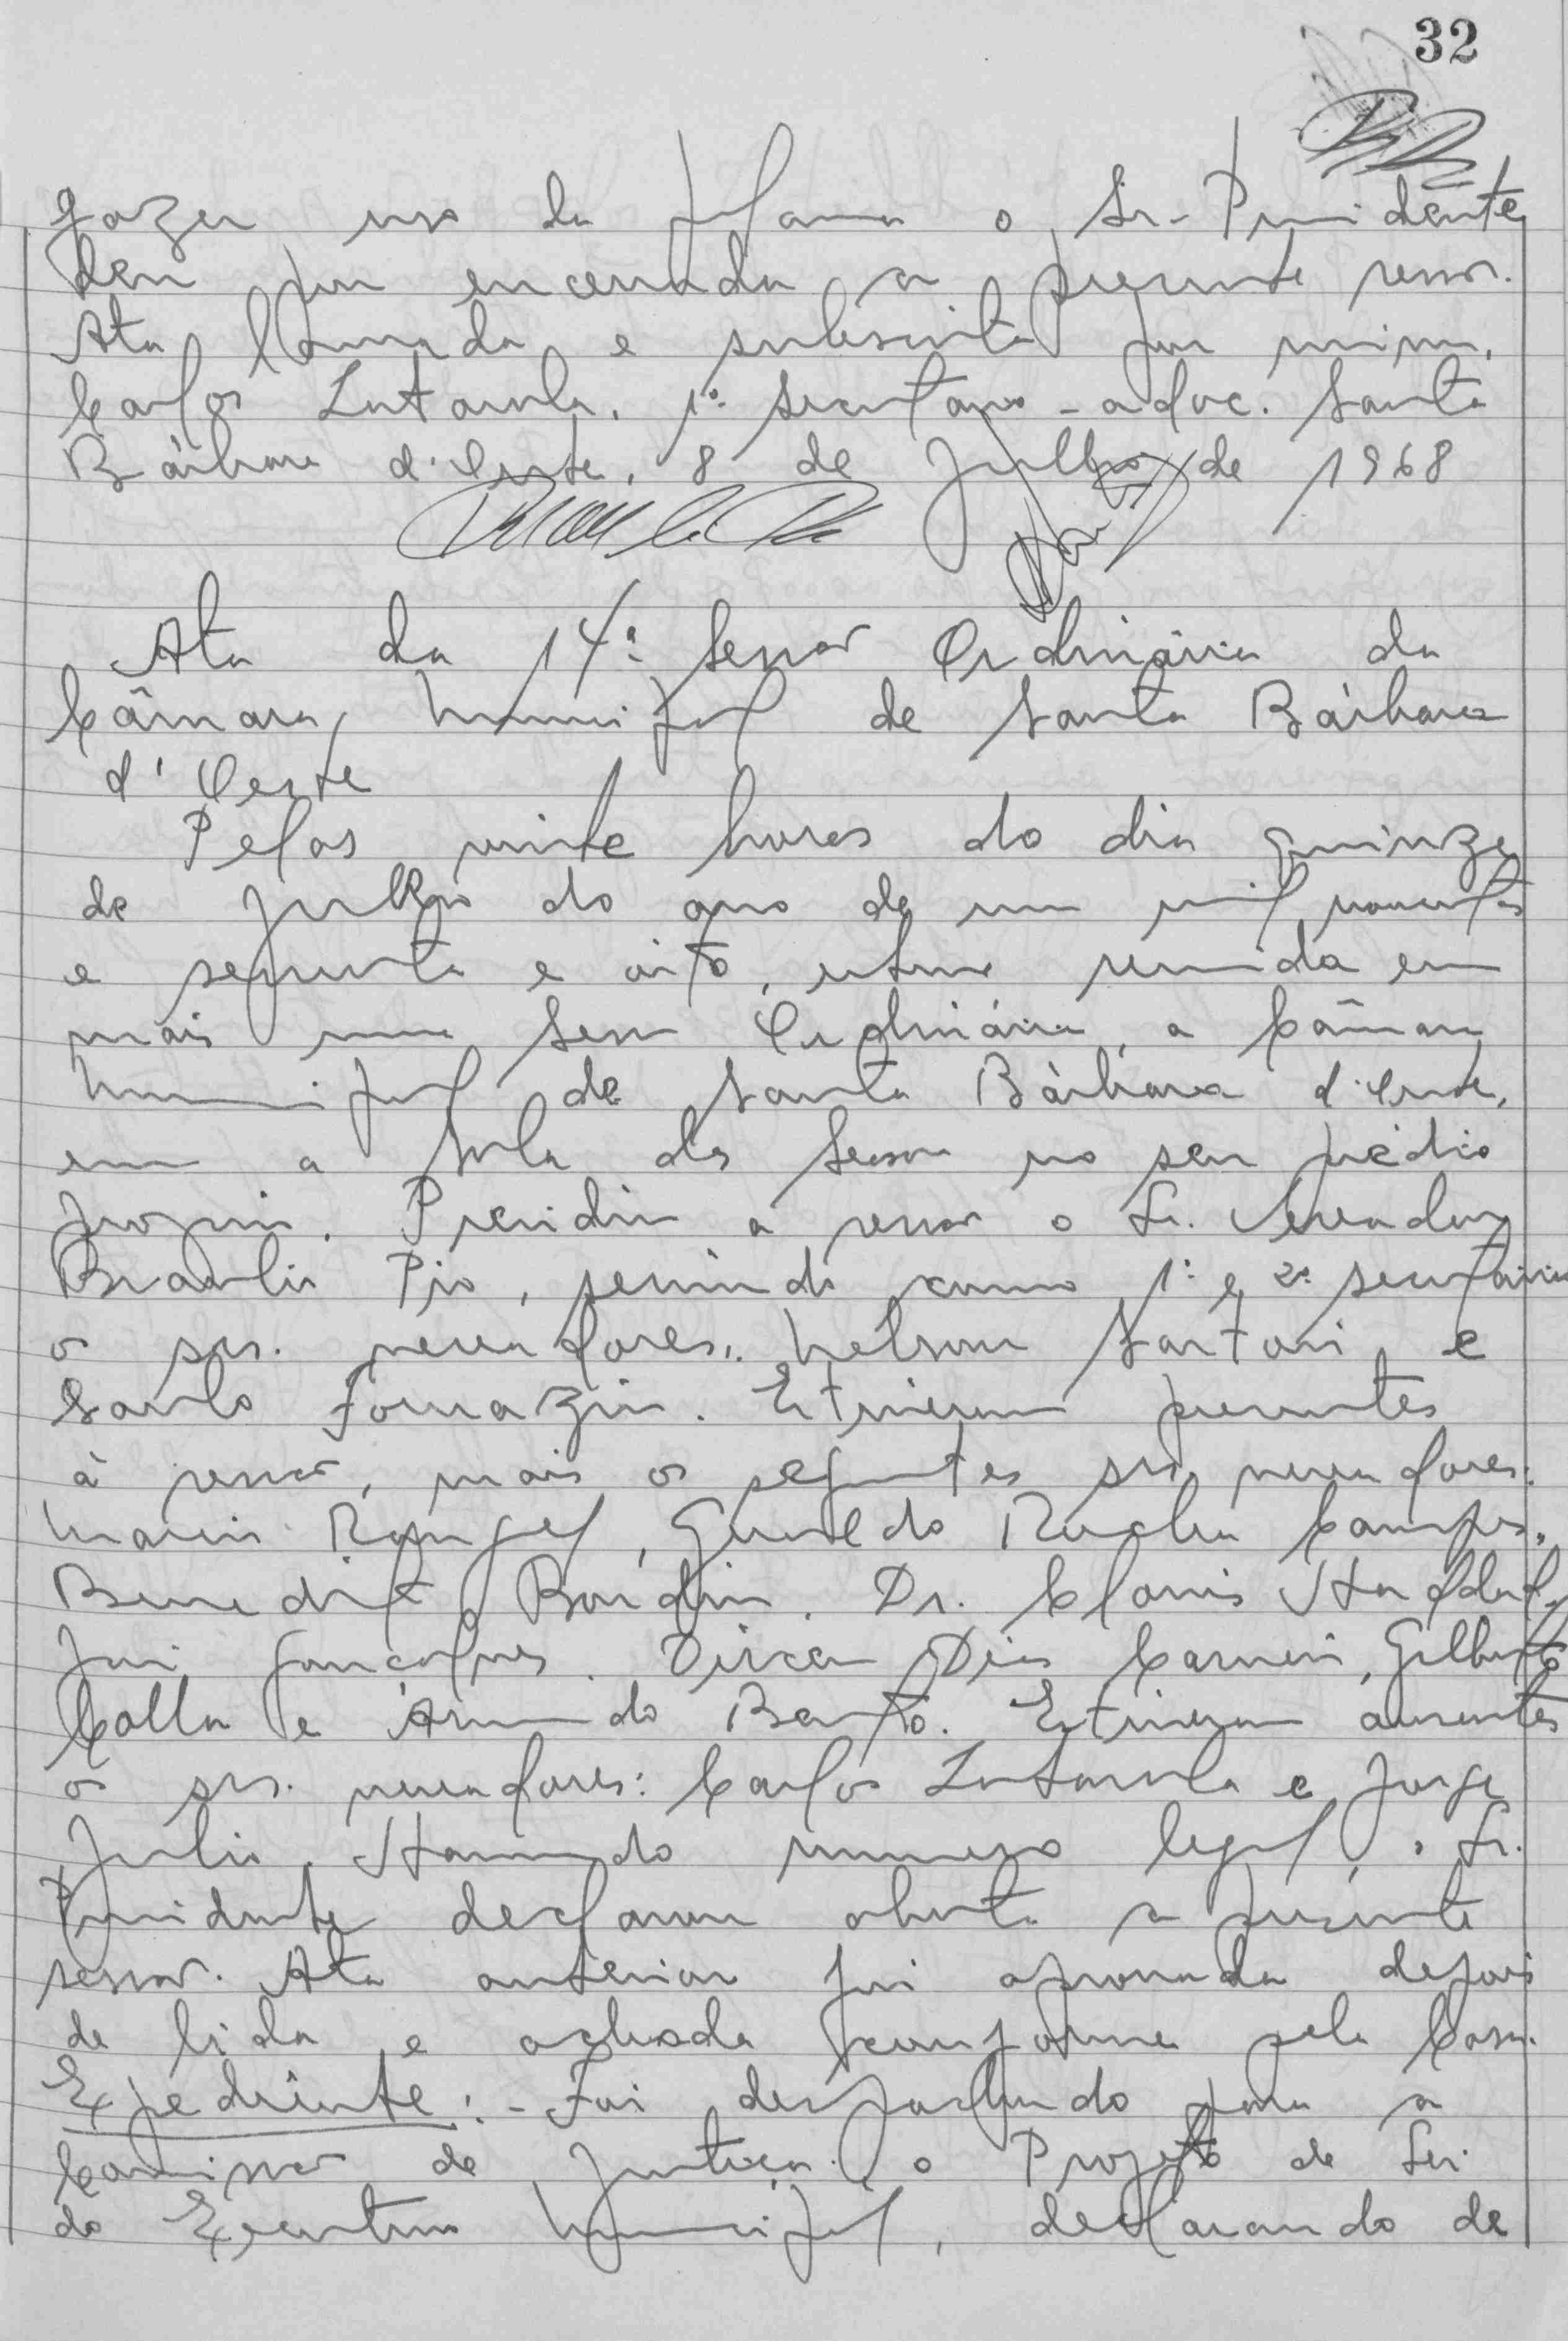 32
fazer uso da palavra o Sr. Presidente
deu por encerrada a presente sessão.
Ata lavrada e subscrita por mim,
Carlos Lutarola, 1º secretario - adoc. Santa
Bárbara d'Oeste, 8 de Julho de 1968
Ata da 14ª Sessão Ordinária da
Câmara Municipal de Santa Bárbara
d'Oeste
Pelas vinte horas do dia quinze
de Julho do ano de um mil novecentos
e sessenta e oito, esteve reunida em
mais uma Sessão Ordinária, a Câmara
Municipal de Santa Bárbara d'Oeste,
em a Sala das Sessões no seu prédio
proprio. Presidiu a sessão o Sr. Vereador
Braulio Pio, servindo como 1º e 2º secretários
os srs. vereadores, Nelson Sartori e
Santo Fornazin. Estiveram presentes
à sessão, mais os seguintes srs. vereadores:
Mario Rangel, Gueraldo Rocha Campos,
Benedito Bordin, Dr. Clovis Haddad,
José Gonçalves, Dirceu Dias Carneiro, Gilberto
Colla e Armando Bento. Estiveram ausentes
os srs. vereadores: Carlos Lutarola e Jorge
Julio. Havendo numero legal, o Sr.
Presidente declarou aberta a presente
sessão. Ata anterior foi aprovada depois
de lida e achada conforme pela Casa.
Expediente: - Foi despachado para a
Comissão de Justiça, o Projeto de Lei
do Executivo Municipal, declarando de